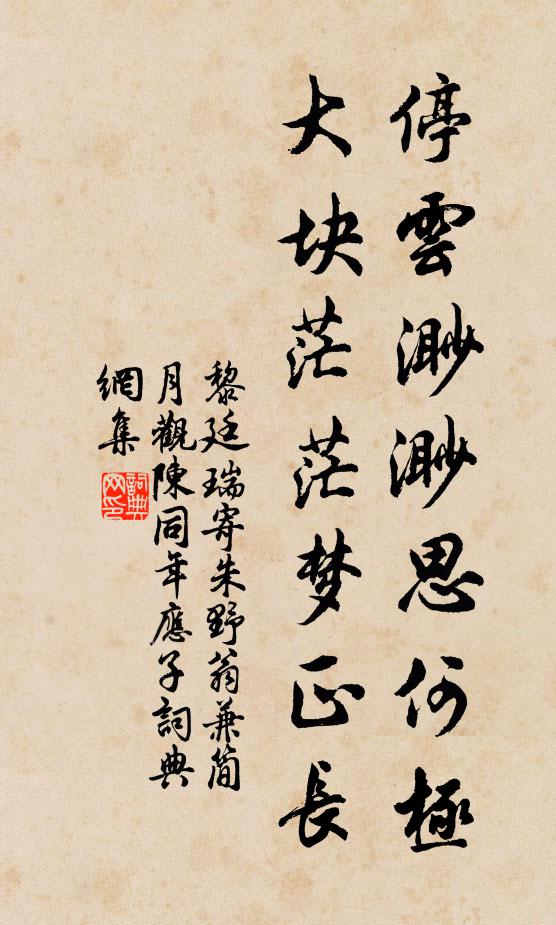 停雲渺渺思何極
大块茫茫梦正長
黎廷瑞寄朱野翁兼簡
月觀陳同年應子詞典
網集
詞典
网印